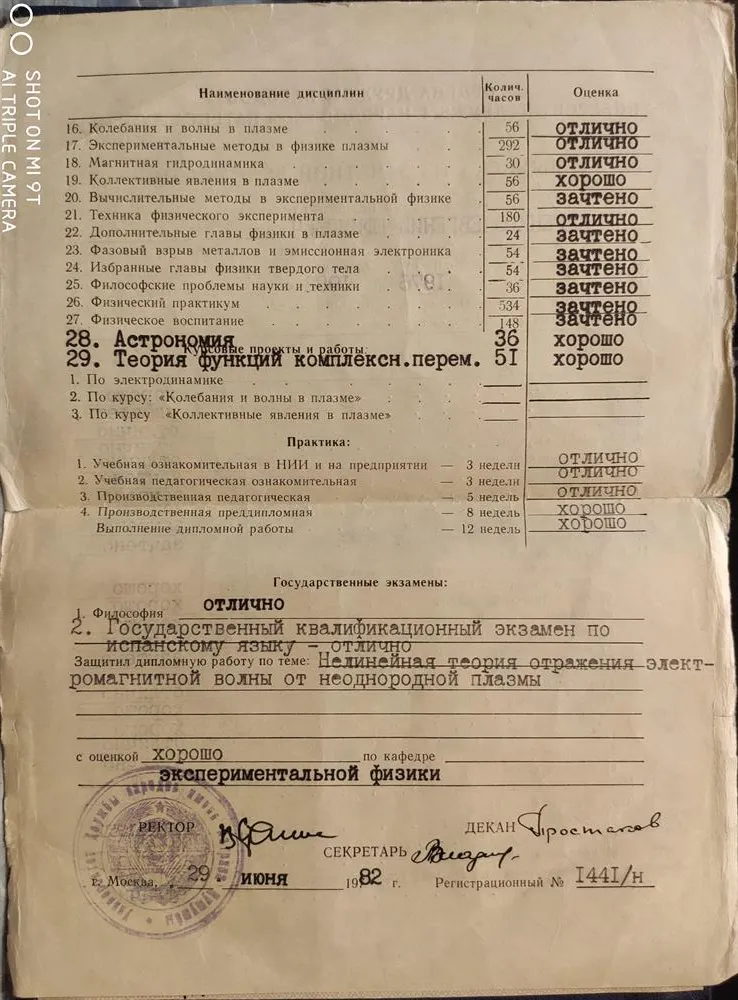 SHOT ON MI 9T
AI TRIPLE CAMERA
Наименование дисциплин Колич. часов Оценка
16. Колебания и волны в плазме 56 отлично
17. Экспериментальные методы в физике плазмы 292 отлично
18. Магнитная гидродинамика 30 отлично
19. Коллективные явления в плазме 56 хорошо
20. Вычислительные методы в экспериментальной физике 56 зачтено
21. Техника физического эксперимента 180 отлично
22. Дополнительные главы физики в плазме 24 зачтено
23. Фазовый взрыв металлов и эмиссионная электроника 54 зачтено
24. Избранные главы физики твердого тела 54 зачтено
25. Философские проблемы науки и техники 36 зачтено
26. Физический практикум 534 зачтено
27. Физическое воспитание 148 зачтено
28. Астрономия 36 хорошо
Курсовые проекты и работы:
29. Теория функций комплексн.перем. 51 хорошо
1. По электродинамике
2. По курсу: «Колебания и волны в плазме»
3. По курсу «Коллективные явления в плазме»
Практика:
1. Учебная ознакомительная в НИИ и на предприятии — 3 недели отлично
2. Учебная педагогическая ознакомительная — 3 недели отлично
3. Производственная педагогическая — 5 недель отлично
4. Производственная преддипломная — 8 недель хорошо
Выполнение дипломной работы — 12 недель хорошо
Государственные экзамены:
1. Философия отлично
2. Государственный квалификационный экзамен по
испанскому языку - отлично
Защитил дипломную работу по теме: Нелинейная теория отражения элект-
ромагнитной волны от неоднородной плазмы
с оценкой хорошо по кафедре
экспериментальной физики
РЕКТОР ДЕКАН
СЕКРЕТАРЬ
г. Москва, 29. июня 1982 г. Регистрационный № I44I/н